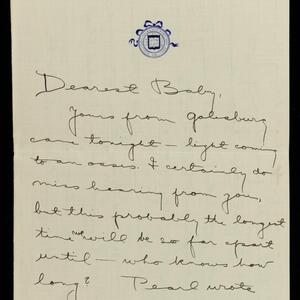 Dearest Baby,
Yours from Galesburg
came tonight – light coming
to an oasis. I certainly do
miss hearing from you,
but this probably the longest
time we will be so far apart
until – who knows how
long? Pearl wrote